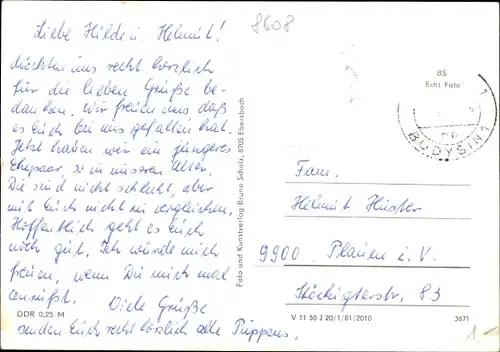 8608
Liebe Hilde u. Helmut!
Möchten uns recht herzlich
für die lieben Grüße be-
danken. Wir freuen uns daß
es Euch bei uns gefallen hat.
Jetzt haben wir ein jüngeres
Ehepaar, so in unseren Alter.
Die sind nicht schlecht, aber
mit Euch nicht zu vergleichen.
Hoffentlich geht es Euch
noch gut. Ich würde mich
freuen, wenn Du mich mal
anrufst.
Viele Grüße
senden Euch recht herzlich alle
DDR 0,25 M
Foto und Kunstverlag Bruno Scholz, 8705 Ebersbach
BS
Echt Foto
BUDYŠIN 1
Fam.
Helmut
9900 Plauen i. V.
Stöckigterstr. 83
V 11 50 J 20/1/81/2010
3671
1.-